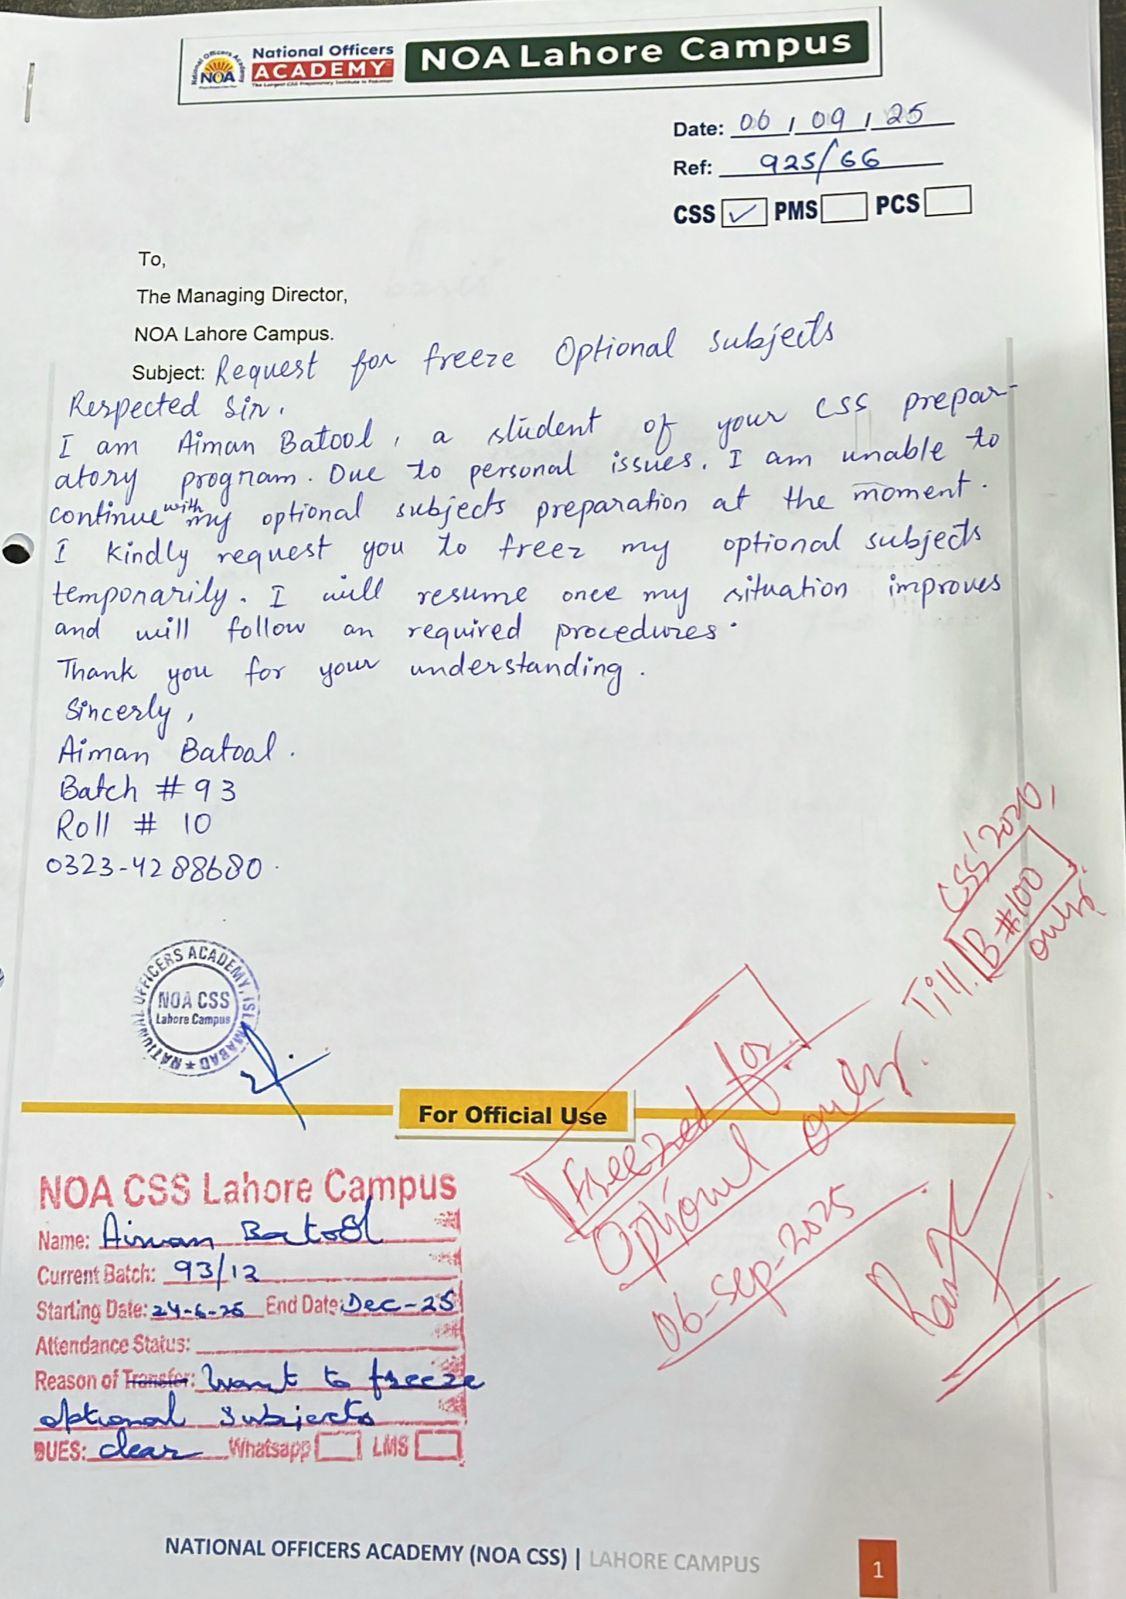 National Officers
ACADEMY
NOA
The Largest CSS Preparatory Institute in Pakistan
NOA Lahore Campus
Date: 06 / 09 / 25
Ref: 925/66
CSS ✓ PMS PCS
To,
The Managing Director,
NOA Lahore Campus.
Subject: Request for freeze Optional subjects
Respected Sir,
I am Aiman Batool, a student of your CSS prepar-
atory program. Due to personal issues, I am unable to
continue with my optional subjects preparation at the moment.
I kindly request you to freez my optional subjects
temporarily. I will resume once my situation improves
and will follow an required procedures.
Thank you for your understanding.
Sincerly,
Aiman Batool.
Batch # 93
Roll # 10
0323-4288680.
NATIONAL OFFICERS ACADEMY, ISLAMABAD
NOA CSS
Lahore Campus
CSS'2026,
Till B#100
only
Freezed for
Optional only.
06-Sep-2025
For Official Use
NOA CSS Lahore Campus
Name: Aiman Batool
Current Batch: 93/12
Starting Date: 24-6-25 End Date: Dec-25
Attendance Status:
Reason of Transfer: Want to freeze
optional subjects
DUES: clear Whatsapp LMS
NATIONAL OFFICERS ACADEMY (NOA CSS) | LAHORE CAMPUS
1